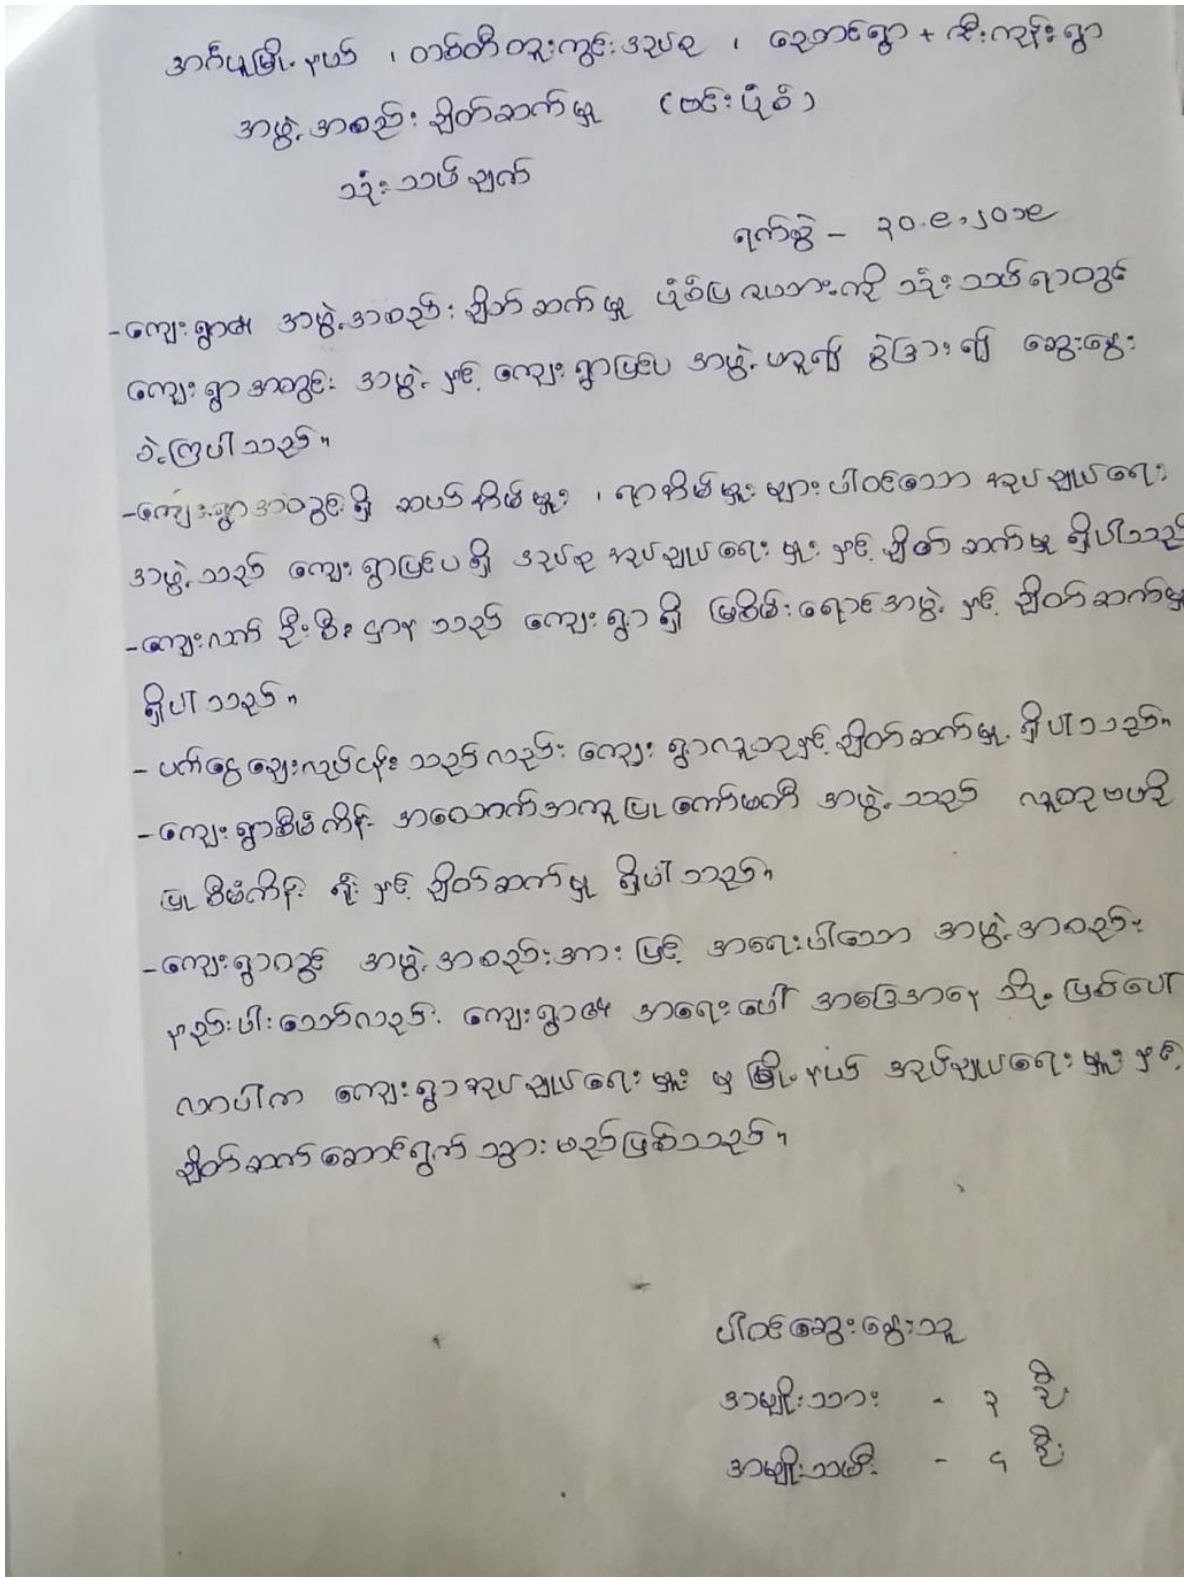 အင်္ဂပူမြို့နယ် ၊ တစ်တီတူးကွင်းအုပ်စု ၊ ညောင်ရွာ + ဇီးကုန်းရွာ
အဖွဲ့အစည်းချိတ်ဆက်မှု (ဗင်းပုံစံ)
သုံးသပ်ချက်
ရက်စွဲ - ၃၀.၉.၂၀၁၉
- ကျေးရွာ၏ အဖွဲ့အစည်းချိတ်ဆက်မှု ပုံစံပြဇယားကို သုံးသပ်ရာတွင်
ကျေးရွာအတွင်း အဖွဲ့ နှင့် ကျေးရွာပြင်ပ အဖွဲ့ ဟူ၍ ခွဲခြား၍ ဆွေးနွေး
ခဲ့ကြပါသည်။
- ကျေးရွာအတွင်းရှိ ဆယ်အိမ်မှူး ၊ ရာအိမ်မှူးများပါဝင်သော အုပ်ချုပ်ရေး
အဖွဲ့သည် ကျေးရွာပြင်ပရှိ အုပ်စုအုပ်ချုပ်ရေးမှူးနှင့် ချိတ်ဆက်မှုရှိပါသည်
- ကျေးလက်ဦးစီးဌာန သည် ကျေးရွာရှိ မြစိမ်းရောင်အဖွဲ့ နှင့် ချိတ်ဆက်မှု
ရှိပါသည်။
- ပက်ငွေချေးလုပ်ငန်း သည်လည်း ကျေးရွာလူထုနှင့် ချိတ်ဆက်မှု ရှိပါသည်။
- ကျေးရွာစီမံကိန်း အထောက်အကူပြုကော်မတီ အဖွဲ့သည် လူထုဗဟို
ပြုစီမံကိန်းရုံးနှင့် ချိတ်ဆက်မှု ရှိပါသည်။
- ကျေးရွာတွင် အဖွဲ့အစည်းအားဖြင့် အရေးပါသော အဖွဲ့အစည်း
နည်းပါးသော်လည်း ကျေးရွာ၏ အရေးပေါ် အခြေအနေ သို့ ဖြစ်ပေါ်
လာပါက ကျေးရွာအုပ်ချုပ်ရေးမှူး မှ မြို့နယ် အုပ်ချုပ်ရေးမှူးနှင့်
ချိတ်ဆက်ဆောင်ရွက် သွားမည်ဖြစ်သည်။
ပါဝင်ဆွေးနွေးသူ
အမျိုးသား - ၃ ဦး
အမျိုးသမီး - ၄ ဦး